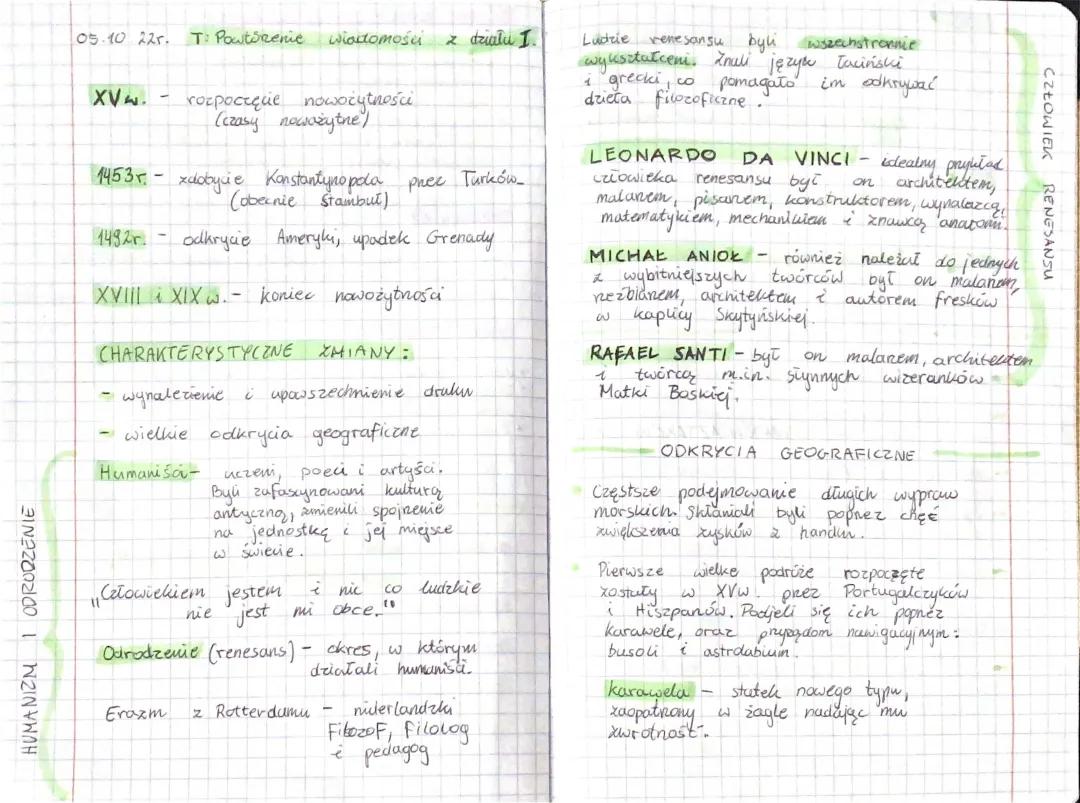 05.10 22r. T: Powtórzenie wiadomości z działu I.
XVw. - rozpoczęcie nowożytności
(czasy nowożytne)
1453r. - zdobycie Konstantynopola przez Turków
(obecnie Stambuł)
1492r. - odkrycie Ameryki, upadek Grenady
XVIII i XIX w. - koniec nowożytności
CHARAKTERYSTYCZNE ZMIANY:
- wynalezienie i upowszechnienie druku
- wielkie odkrycia geograficzne
HUMANIZM I ODRODZENIE
Humaniści - uczeni, poeci i artyści.
Byli zafascynowani kulturą
antyczną, zmienili spojrzenie
na jednostkę i jej miejsce
w świecie.
"Człowiekiem jestem i nic co ludzkie
nie jest mi obce."
Odrodzenie (renesans) - okres, w którym
działali humaniści.
Erazm z Rotterdamu - niderlandzki
Filozof, filolog
i pedagog
CZŁOWIEK RENESANSU
Ludzie renesansu byli wszechstronnie
wykształceni. Znali język łaciński
i grecki, co pomagało im odkrywać
dzieła filozoficzne.
LEONARDO DA VINCI - idealny przykład
człowieka renesansu był on architektem,
malarzem, pisarzem, konstruktorem, wynalazcą,
matematykiem, mechanikiem i znawcą anatomi.
MICHAŁ ANIOŁ - również należał do jednych
z wybitniejszych twórców był on malarzem,
rzeźbiarzem, architektem i autorem fresków
w kaplicy Skytyńskiej.
RAFAEL SANTI - był on malarzem, architektem
i twórcą m.in. słynnych wizerunków
Matki Boskiej.
ODKRYCIA GEOGRAFICZNE
Częstsze podejmowanie długich wypraw
morskich. Skłaniali byli poprzez chęć
zwiększenia zysków z handlu.
Pierwsze wielkie podróże rozpoczęte
zostały w XVw. przez Portugalczyków
i Hiszpanów. Podjeli się ich poprzez
karawele, oraz przyrządom nawigacyjnym:
busoli i astrolabium.
karawela - statek nowego typu,
zaopatrzony w żagle nadając mu
zwrotność.